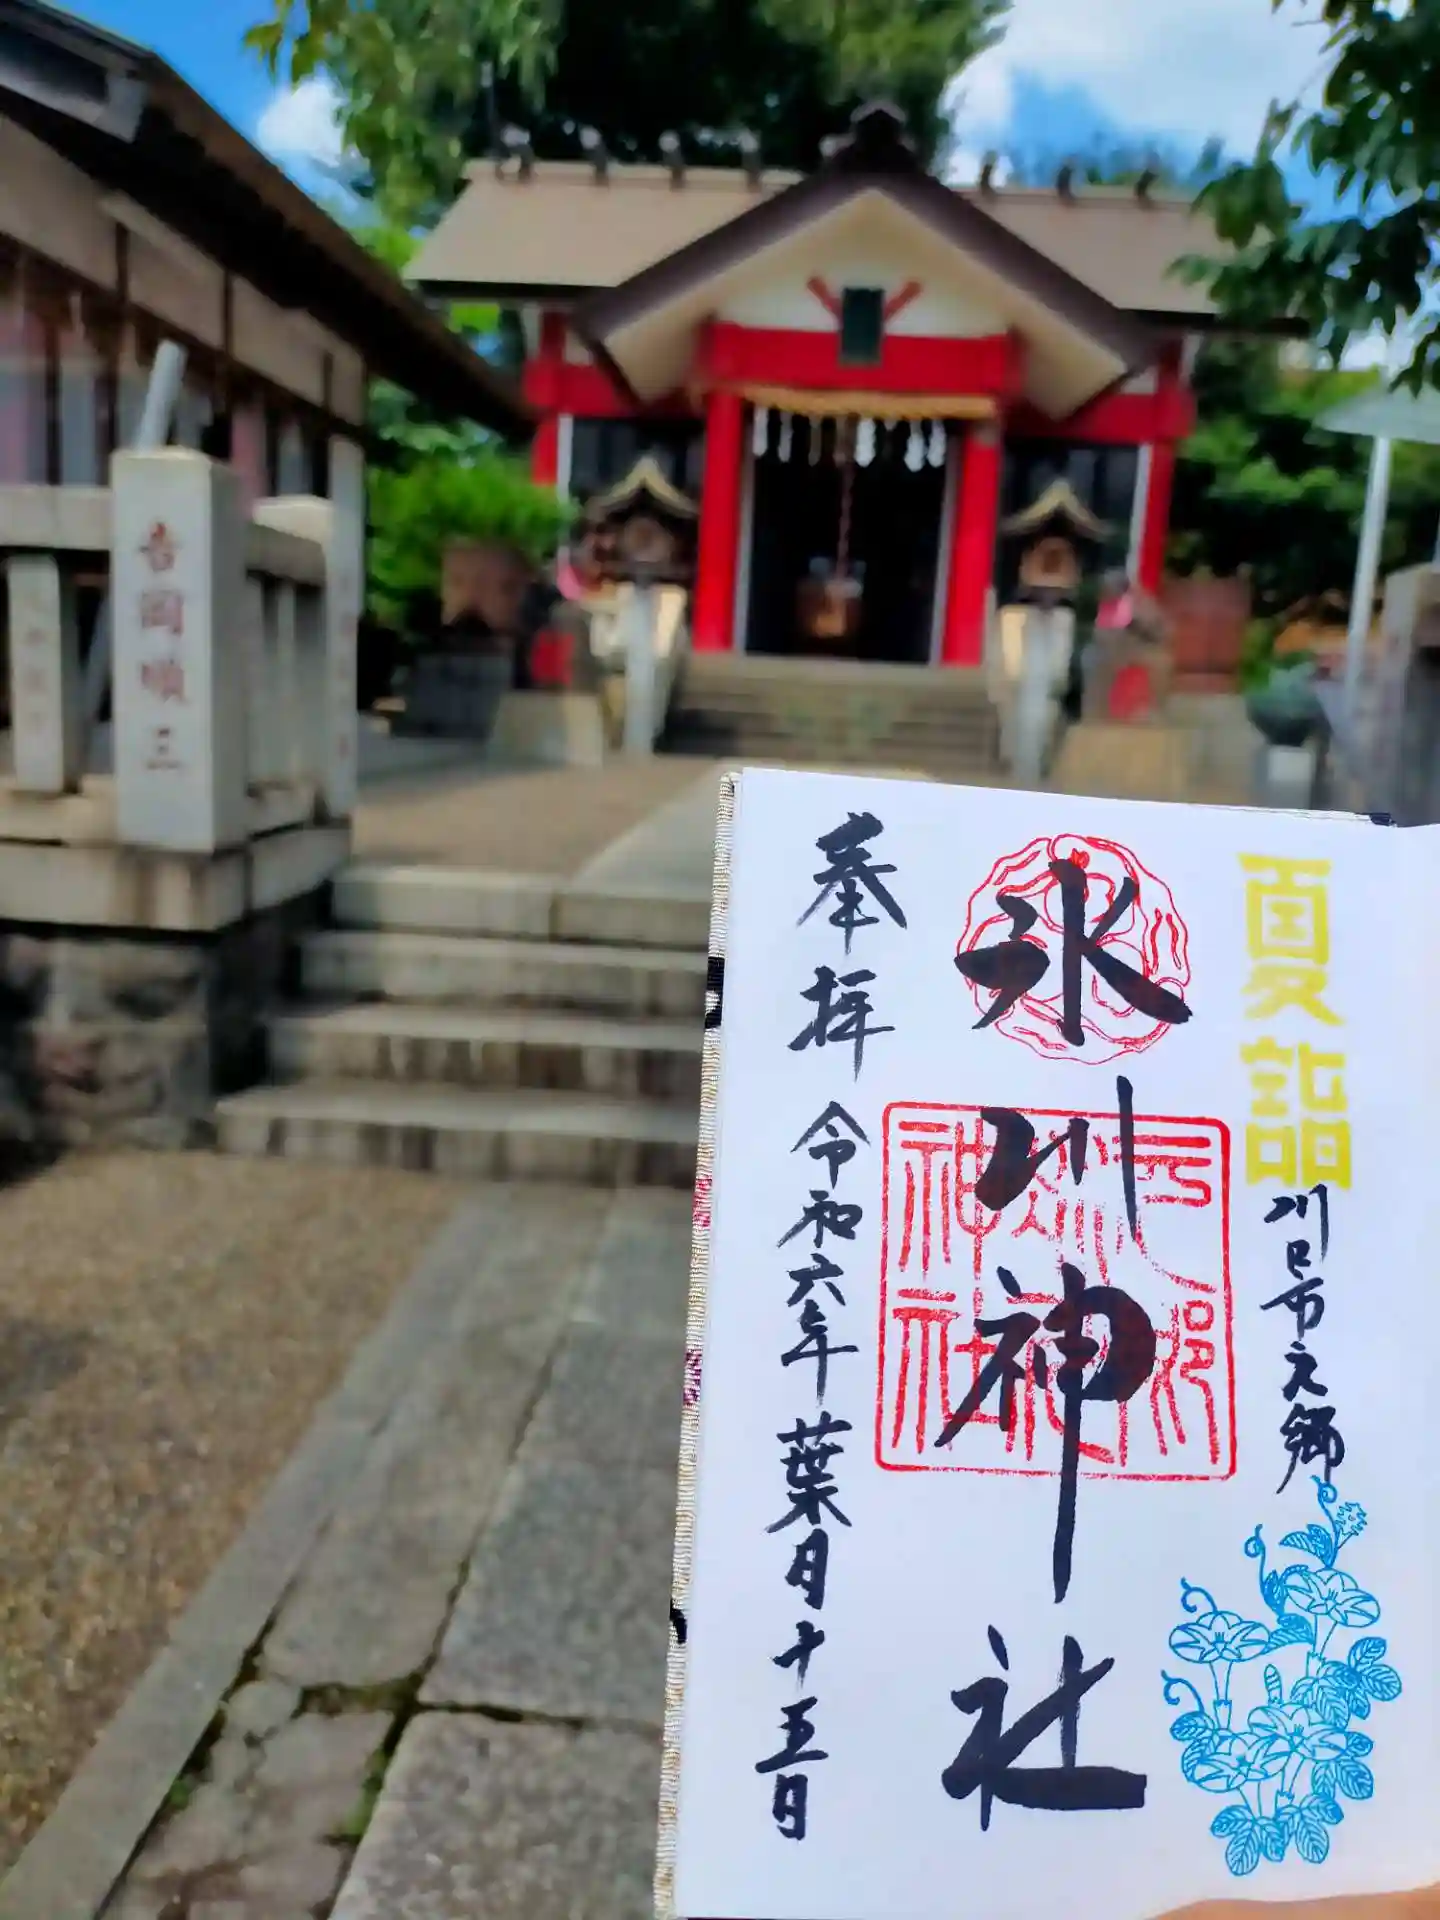 夏詣
川口市元郷
氷川神社
元郷氷川神社
奉拝 令和六年 葉月十五日
吉岡順三